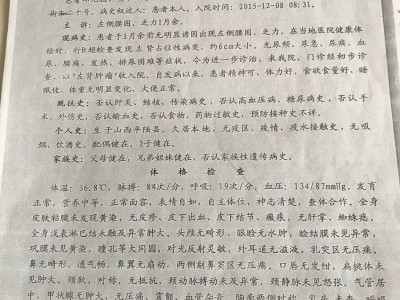 街二十号。病史叙述人：患者本人，入院时间：2015-12-08 08:31。
主 诉：左侧腰困、乏力1月余。
现病史：患者于1月余前无明显诱因出现左侧腰困、乏力，在当地医院健康体
检时，行B超检查发现左肾占位性病变，约6cm大小，无尿频、尿急、尿痛、血
尿、腰痛、发热、排尿困难等症状，今为进一步诊治，来我院，门诊经初步诊
查，以"左肾肿瘤"收入院，自发病以来，患者精神可、体力好、食欲食量好、睡
眠佳、体重无明显变化，大便正常。
既往史：否认肝炎、结核、传染病史，否认高血压病、糖尿病史，否认手
术、外伤史，否认输血史，否认食物、药物过敏史，预防接种史不详。
个人史：生于山西平陆县，久居本地，无疫区、疫情、疫水接触史，无吸
烟、饮酒史，配偶健在，2子健在。
家族史：父母健在，兄弟姐妹健在，否认家族性遗传病史。
体 格 检 查
体温：36.8℃，脉搏：84次/分，呼吸：19次/分，血压：134/87mmHg，发育
正常，营养中等，正常面容，表情自如，自主体位，神志清楚，查体合作。全身
皮肤粘膜未发现黄染，无皮疹、皮下出血、皮下结节、瘢痕，无肝掌、蜘蛛痣。
全身浅表淋巴结未触及异常肿大。头颅无畸形、眼睑无水肿，睑结膜未见异常，
巩膜未见黄染，瞳孔等大同圆，对光反射灵敏，外耳道无溢液，乳突区无压痛，
鼻无畸形，通气畅，鼻翼无扇动，两侧副鼻窦区无压痛，口唇无发绀，扁桃体未
见肿大。颈软，对称，无抵抗，颈动脉搏动未及异常，颈静脉未见怒张，气管居
中，甲状腺无肿大，无压痛、震颤、血管杂音，胸廓两侧对称，